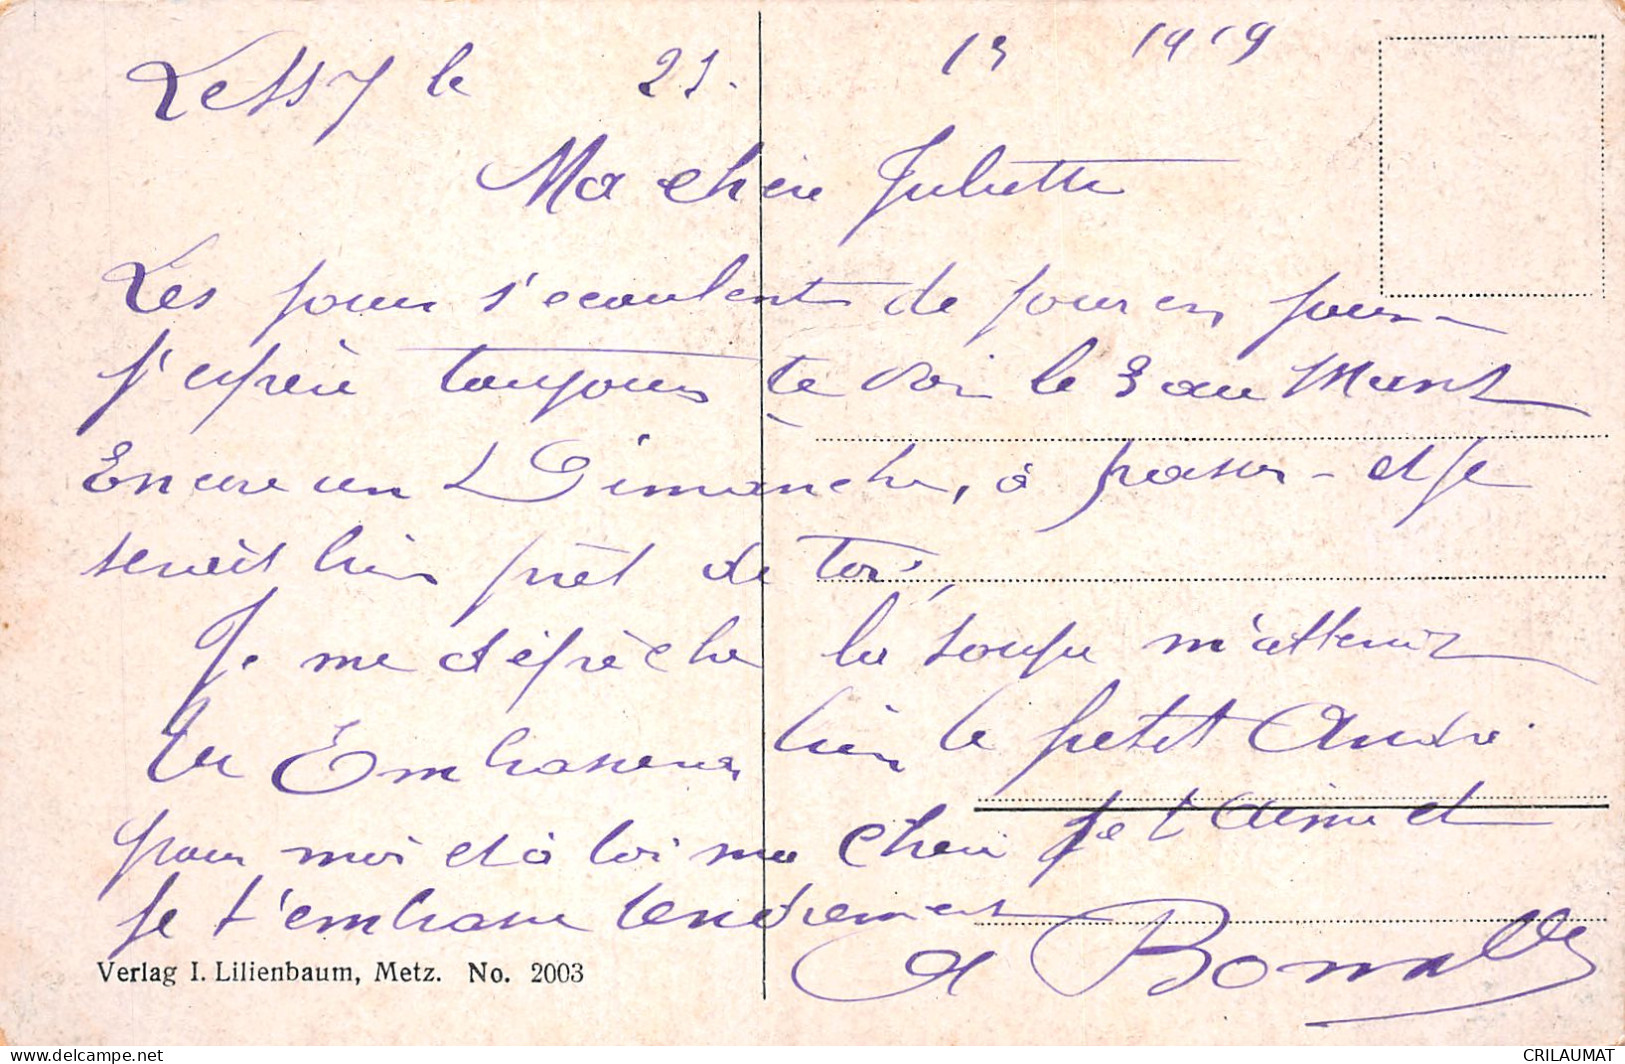 Lessy le 21. 13 1919
Ma cheire Juliette
Les jours s'ecoulent de jour en jour
j'espère toujours te voir le 3 au Mans
Encore un Dimanche, à passer - et je
serait bien prêt de toi,
Je me dépèche la soupe m'attend
tu Embrassera bien le petit André
pour moi et à toi ma Cheri je t'aime et
je t'embrasse tendrement
A Bonnalde
Verlag I. Lilienbaum, Metz. No. 2003
CRILAUMAT